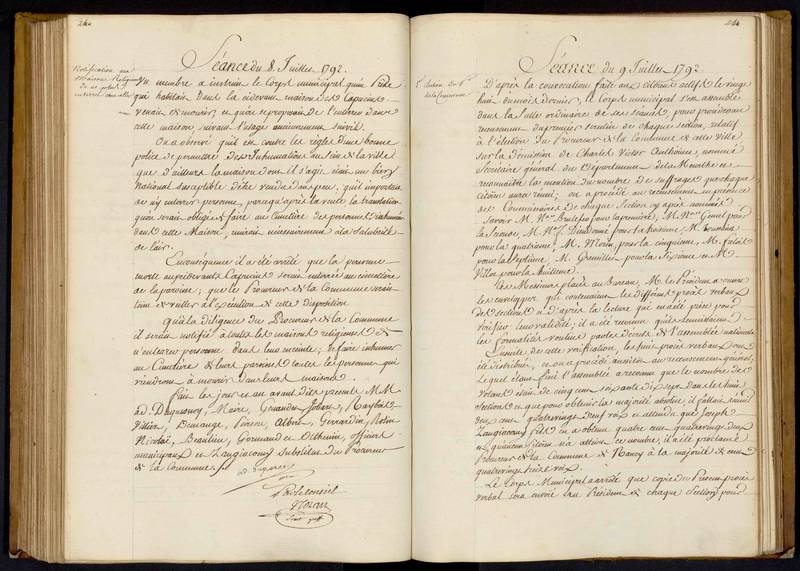 Séance du 8. Juillet 1792.
Notification aux
maisons Religieuses
de ne point
enterrer chez elles
Un membre a instruit le Corps municipal qu'un Prêtre
qui habitait dans la cidevant maison des Capucins
venait de mourir, et qu'on se proposait de l'enterrer dans
cette maison, suivant l'usage anciennement suivi.
On a observé qu'il est contre les règles d'une bonne
police de permettre des inhumations au sein de la ville
que d'ailleurs la maison dont il s'agit, était un bien
National susceptible d'être vendu dans peu, qu'il importait
de n'y enterrer personne, parcequ'après la vente la translation
qu'on serait obligé de faire au Cimetière des personnes inhumées
dans cette Maison, nuirait nécessairement à la salubrité
de l'air.
En conséquence il a été arrêté que la personne
morte aux cidevant Capucins serait enterrée au cimetière
de la paroisse; que le Procureur de la Commune serait
tenu de veiller à l'exécution de cette disposition
Qu'à la diligence du Procureur de la Commune
il serait notifié à toutes les maisons religieuses de
n'enterrer personne dans leur enceinte; de faire inhumer
au Cimetière de leurs paroisses toutes les personnes qui
viendront à mourir dans leurs maisons.
Fait les jour et an avant dits présents MM.
ad. Duquesnoy, Maire, Genaudet, Jobart, Raybois
Villiez, Demange, Poirson, Albert, Gerrardin, Rolin
Nicolaï, Beaulieu, Germain et Othenin, officiers
municipaux et Zangiacomy Substitut du Procureur
de la Commune./.
ad. Duquesnoy
maire
Par le conseil
Rolin
Secret. greff.
Séance du 9 Juillet 1792.
Election du Pr.
de la Commune
D'après la convocation faite aux citoiens actifs le vingt
huit du mois dernier, le Corps municipal s'est assemblé
dans la salle ordinaire de ses séances, pour procéder au
recensement du premier scrutin de chaque section, relatif
à l'élection du Procureur de la Commune de cette Ville
sur la démission de Charles Victor Anthoine, nommé
Secrétaire général du Département de la Meurthe et
reconnaitre la mention du nombre de suffrages que chaque
citoien aura réuni; on a procédé au recensement en présence
des Commissaires de chaque Section cy après nommés
savoir M. Nas. Brulefer pour la première, M. Nas. Genet pour
la seconde, M. Nas. Dieudonné pour la troisième, M. Tournier
pour la quatrième, M. Morin, pour la cinquième, M. Falait
pour la Septième, M. Grenillier pour la Sixième et M.
Villot pour la huitième.
Ces Messieurs placés au Bureau, M. le Président a ouvert
les enveloppes qui contenaient les différents procès verbaux
des sections, et d'après la lecture qui en a été prise pour
vérifier leur validité, il a été reconnu qu'ils remplissaient
les formalités voulues par les décrets de l'assemblée nationale
Ensuite de cette vérification, les huit procès verbaux ont
été distribués, et on a procédé aussitot au recensement général,
lequel étant fini l'assemblée a reconnu que le nombre des
votans était de cinq cent soixante dix sept dans les huit
sections et que pour obtenir la majorité absolue il fallait réunir
deux cent quatrevingt neuf voix et attendu que Joseph
Zangiacomy fils en a obtenu quatre cent quatrevingt deux
et qu'aucun Citoien n'a atteint ce nombre, il a été proclamé
Procureur de la Commune de Nancy à la majorité de cent
quatrevingt treize voix
Le Corps Municipal a arrêté que copie du Présent procès
verbal sera envoié au Président de chaque Section pour